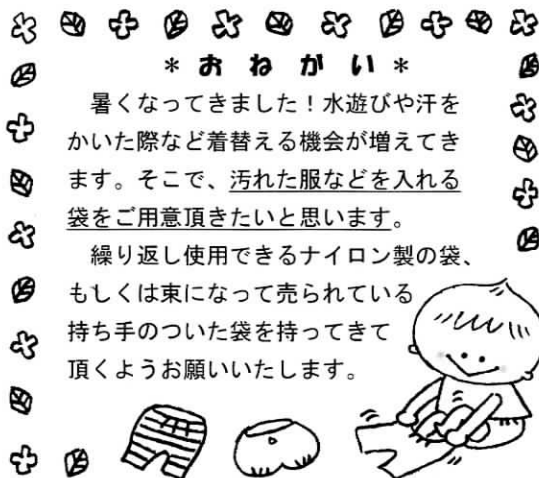 ＊おねがい＊
　暑くなってきました！水遊びや汗を
かいた際など着替える機会が増えてき
ます。そこで、汚れた服などを入れる
袋をご用意頂きたいと思います。
　繰り返し使用できるナイロン製の袋、
もしくは束になって売られている
持ち手のついた袋を持ってきて
頂くようお願いいたします。